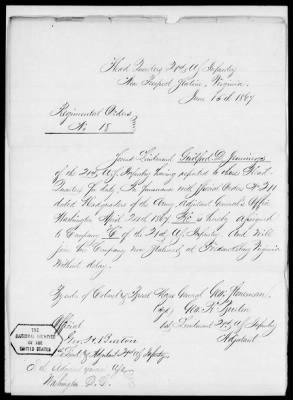 Head Quarters 21st U.S. Infantry
Near Virginia
June 15th 1867
Regimental Orders
No 18
Second Lieutenant Guilford D. Jennings
of the 21st U.S. Infantry having reported to these Head-
Quarters for duty, in pursuance with Special Orders No 211
dated Headquarters of the Army Adjutant General's Office
Washington April 1867 is hereby assigned
to Company "C" of the 21st U.S. Infantry and will
join his Company now Stationed at Fredericksburg Virginia
without delay.
By order of Colonel & Brevet Major General Geo Stoneman
Geo H.
1st Lieutenant 21st U.S. Infantry
Adjutant
Official
Geo H.
1st Lieut & Adjutant 21st U.S. Infantry
Adjutant General
Washington D.C.
THE
NATIONAL ARCHIVES
OF THE
UNITED STATES